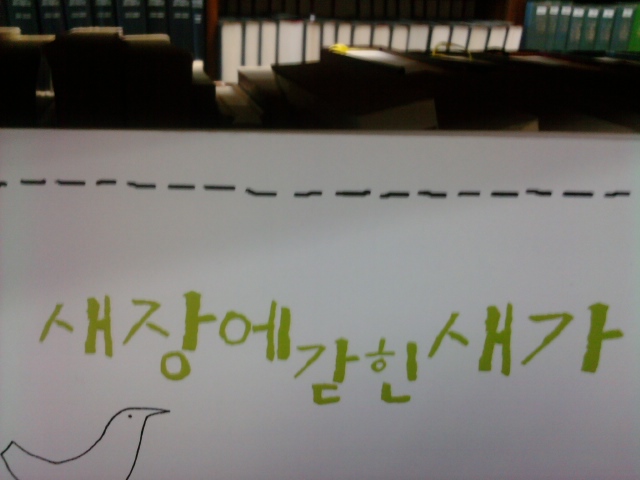 새장에 갇힌 새가